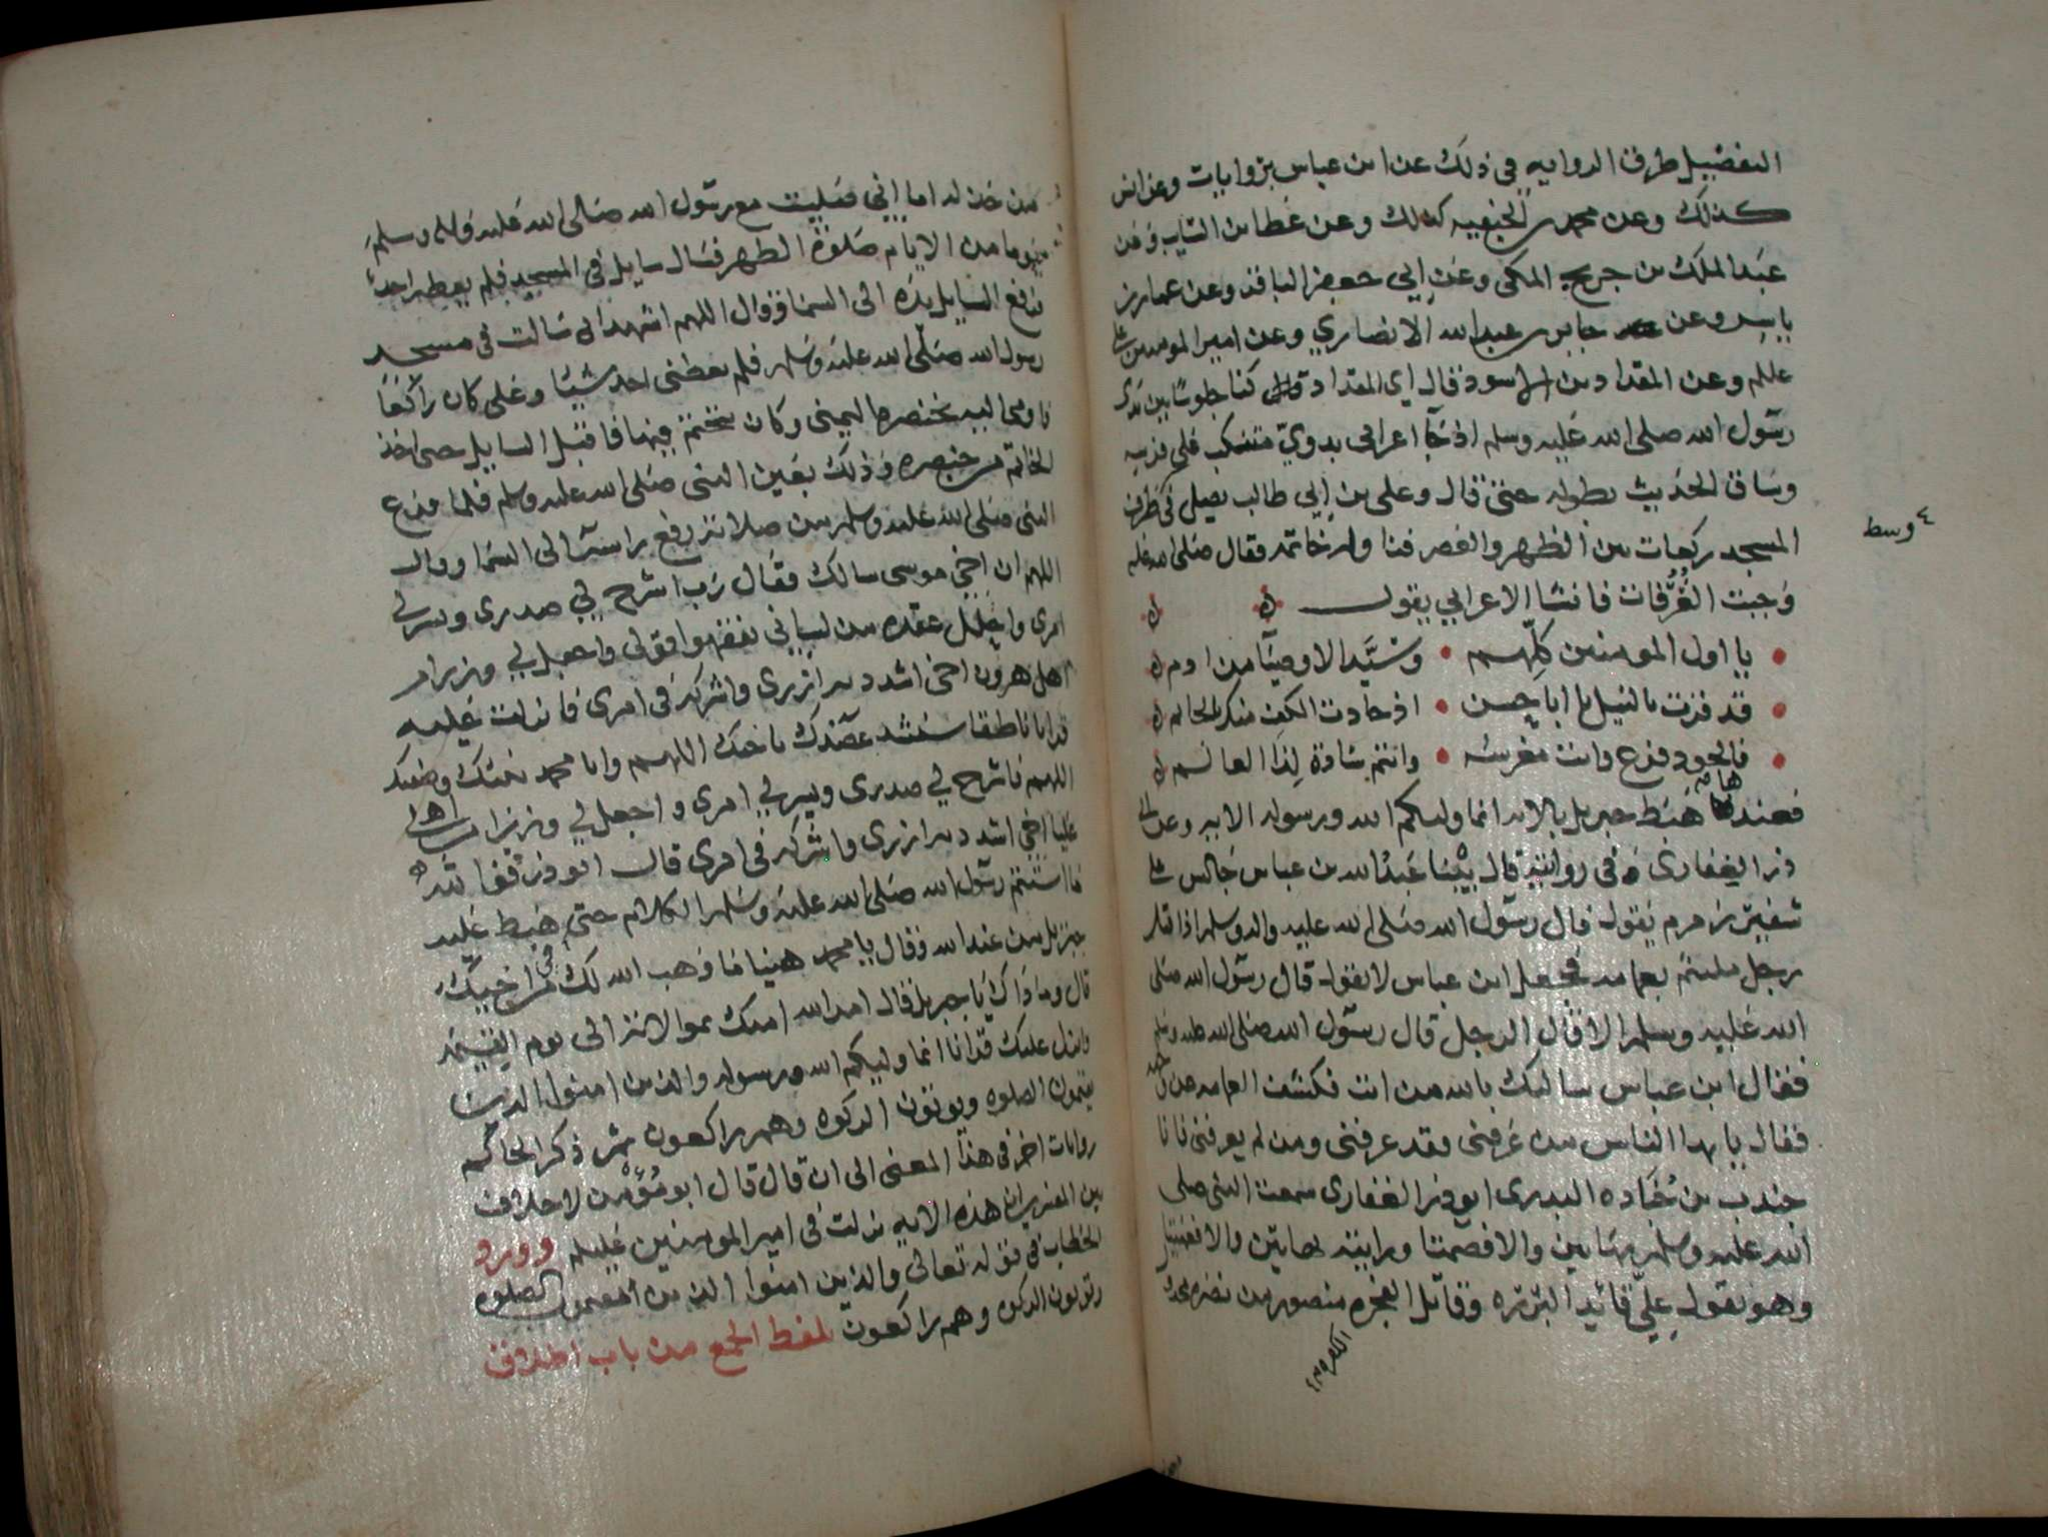 التفضيل طرق الروايه في ذلك عن ابن عباس بروايات وعن انس
كذلك وعن محمد بن الحنفيه كذلك وعن عطا بن السايب وعن
عبد الملك بن جريج المكي وعن ابي جعفر الباقر وعن عمار بن
ياسر وعن جابر بن عبد الله الانصاري وعن امير المومنين
عليلم وعن المقداد بن الاسود قال اي المقداد كنا جلوسًا بين يدي
رسول الله صلى الله عليه وسلم اذ جآ اعرابي بدويّ متنكب على قوسه
وساق الحديث بطوله حتى قال وعلي بن ابي طالب يصلي في
وسط
المسجد ركعات بين الظهر والعصر فناوله خاتمه فقال صلى الله عليه
وجبت الغُرُفات فانشا الاعرابي يقول
يا اول المومنين كلِّهم وسيَّد الاوصيآ من ادم
قد فزت بالنيل يا ابا حسن اذ جادت الكف منك بالخاتم
فالجود فرع وانت مغرسه وانتم سادة لذا العالم
فعندها هبط جبريل بالايه انما وليكم الله ورسوله الايه وعن ابي
ذر الغفاري في روايته قال بينا عبد الله بن عباس جالس على
شفير زمزم يقول قال رسول الله صلى الله عليه واله وسلم اذ اقبل
رجل ملتثم بعمامه فجعل ابن عباس لا يقول قال رسول الله صلى
الله عليه وسلم الا قال الرجل قال رسول الله صلى الله عليه وسلم
فقال ابن عباس سالتك بالله من انت فكشف العمامه عن وجهه
فقال يا يها الناس من عرفني فقد عرفني ومن لم يعرفني فانا
جندب بن جُنَاده البدري ابو ذر الغفاري سمعت النبي صلى
الله عليه وسلم بهاتين والا فصمتا ورايته بهاتين والا فعميتا
وهو يقول عليّ قائد البرره وقاتل الفجره منصور من نصره مخذول
من خذله اما اني صليت مع رسول الله صلى الله عليه واله وسلم
يوما من الايام صلوة الظهر فسال سايل في المسجد فلم يعطه احد
فرفع السايل يده الى السما وقال اللهم اشهد اني سالت في مسجد
رسول الله صلى الله عليه وسلم فلم يعطني احد شيئا وعلي كان راكعًا
فاومى اليه بخنصره اليمنى وكان يتختم فيها فاقبل السايل حتى اخذ
الخاتم من خنصره وذلك بعين النبي صلى الله عليه وسلم فلما فرغ
النبي صلى الله عليه وسلم من صلاته رفع راسه الى السما وقال
اللهم ان اخي موسى سالك فقال رب اشرح لي صدري ويسر لي
امري واحلل عقده من لساني يفقهوا قولي واجعل لي وزيرا من
اهلي هرون اخي اشدد به ازري واشركه في امري فانزلت عليه
قرانا ناطقا سنشد عضدك باخيك اللهم وانا محمد نبيك وصفيك
اللهم فاشرح لي صدري ويسر لي امري واجعل لي وزيرا من اهلي
عليا اخي اشدد به ازري واشركه في امري قال ابو ذر فوالله
ما استتم رسول الله صلى الله عليه وسلم الكلام حتى هبط عليه
جبريل من عند الله وقال يا محمد هنيا ما وهب الله لك في اخيك
قال وما ذاك يا جبريل قال امر الله امتك بموالاته الى يوم القيمه
وانزل عليك قرانا انما وليكم الله ورسوله والذين امنوا الذين
يقيمون الصلوه ويوتون الزكوه وهم راكعون ثم ذكر الحاكم
روايات اخر في هذا المعنى الى ان قال قال ابو مُؤْمن لا خلاف
بين المفسرين ان هذه الايه نزلت في امير المومنين عليلم وورود
الخطاب في قوله تعالى والذين امنوا الذين يقيمون الصلوه
ويوتون الزكوه وهم راكعون بلفظ الجمع من باب اطلاق